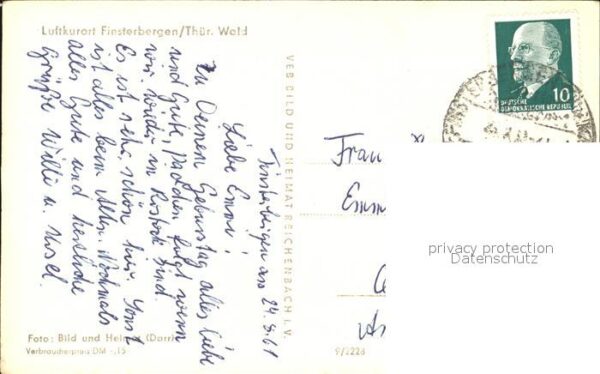 Luftkurort Finsterbergen/Thür. Wald
Finsterbergen am 24.8.61
Liebe Emmi!
Zu Deinem Geburtstag alles Liebe
und Gute, Päckchen folgt wenn
wir wieder in Rostock sind
Es ist sehr schön hier. Sonst
ist alles beim Alten. Nochmals
alles Gute und herzliche
Grüße Willi u. Ursel.
Foto: Bild und Heimat (Dorr)
Verbraucherpreis DM -,15
9/2228
VEB BILD UND HEIMAT REICHENBACH I. V.
10
DEUTSCHE
DEMOKRATISCHE REPUBLIK
Frau
Emm
privacy protection
Datenschutz